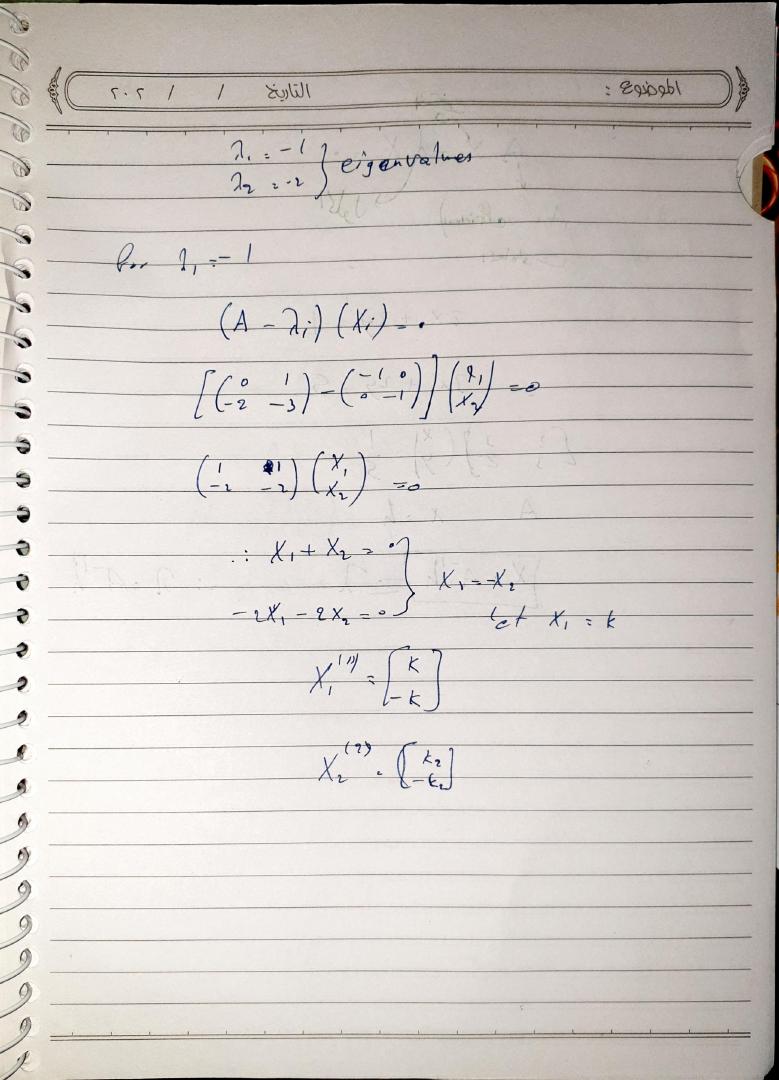 الموضوع : التاريخ / / ٢٠٢
λ₁ = -1
λ₂ = -2 } eigenvalues
for λ₁ = -1
(A - λᵢ) (Xᵢ) = 0
[(0 1 -2 -3) - (-1 0 0 -1)] (X₁ X₂) = 0
(1 1 -2 -2) (X₁ X₂) = 0
∴ X₁ + X₂ = 0
X₁ = -X₂
-2X₁ - 2X₂ = 0
let X₁ = k
X₁⁽¹⁾ = [k -k]
X₂⁽²⁾ = [k₂ -k₂]